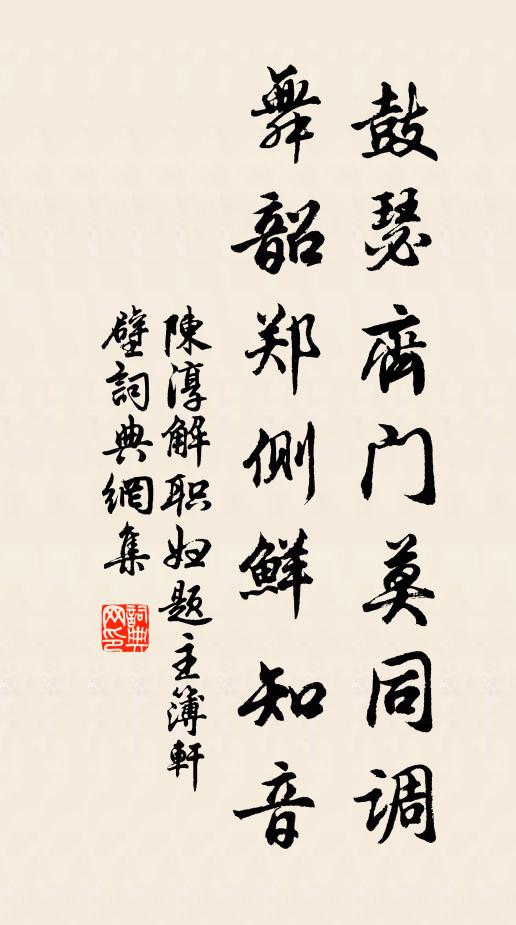 鼓瑟齊门莫同调
舞韶郑侧鮮知音
陳淳解职妞题主簿軒
壁詞典網集
詞典网印